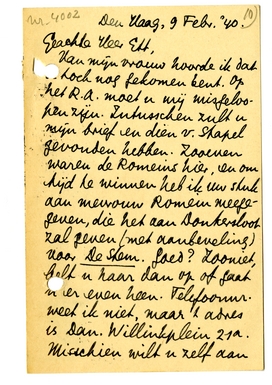 nr. 4002
10
Den Haag, 9 Febr. '40.
Geachte Heer Ett,
Van mijn vrouw hoorde ik dat
U toch nog gekomen bent. Op
het R.A. moet u mij misgeloo-
pen zijn. Intusschen zult u
mijn brief en dien v. Shapel
gevonden hebben. Zooeven
waren de Romeins hier, en om
tijd te winnen heb ik uw stuk
aan mevrouw Romein meege-
geven, die het aan Donkersloot
zal geven (met aanbeveling)
voor De Stem. Goed? Zooniet,
belt u haar dan op of gaat
u er even heen. Telefoonnr.
weet ik niet, maar 't adres
is Dan. Willinkplein 21a.
Misschien wilt u zelf aan